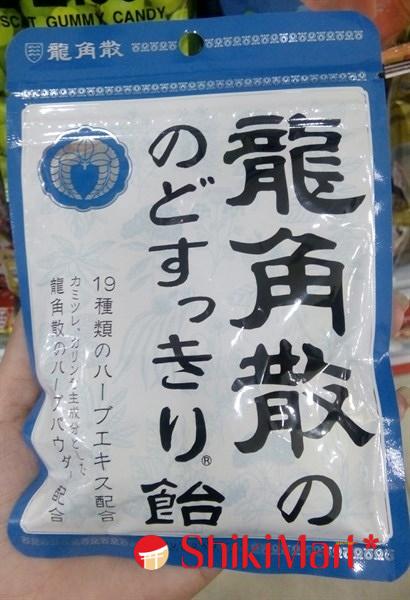 SCUT GUMMY CANDY
龍角散
龍角散の
のどすっきり®飴
19種類のハーブエキス配合
カミツレ、カリンを主成分とした
龍角散のハーブパウダー配合
ShikiMori*